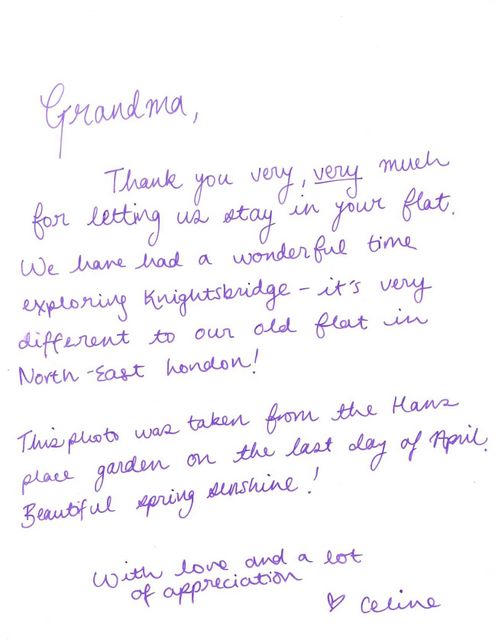 Grandma,
Thank you very, very much
for letting us stay in your flat.
We have had a wonderful time
exploring Knightsbridge - it's very
different to our old flat in
North-East London!
This photo was taken from the Hans
place garden on the last day of April.
Beautiful spring sunshine!
With love and a lot
of appreciation
♡ Celine